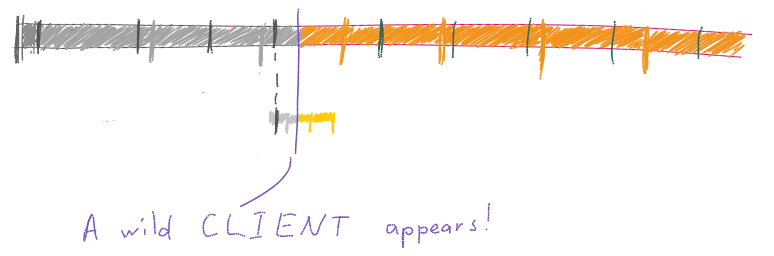 A wild CLIENT appears!